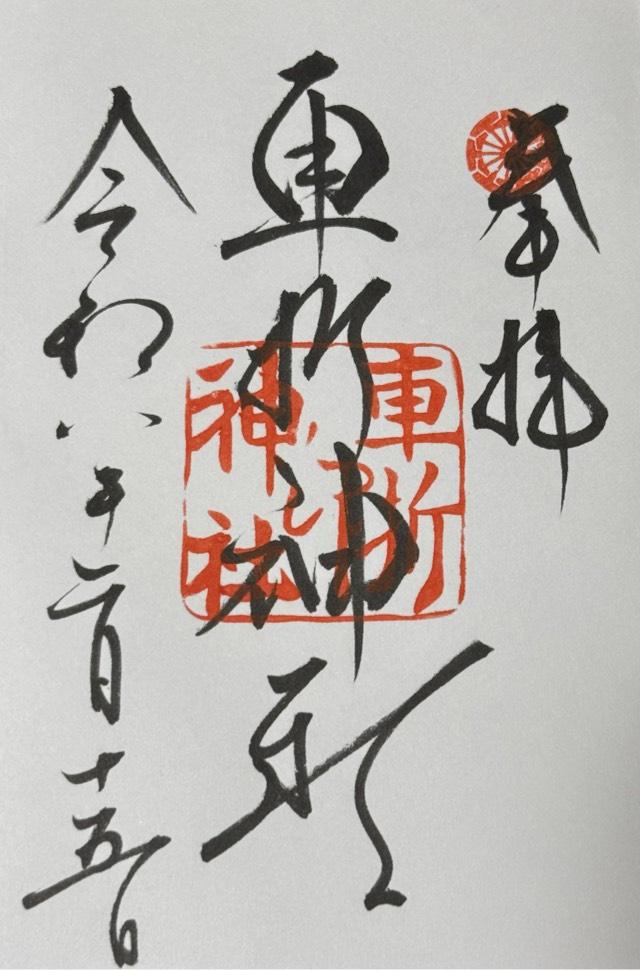 奉拝
車折神社
車折
神社
令和八年二月十五日